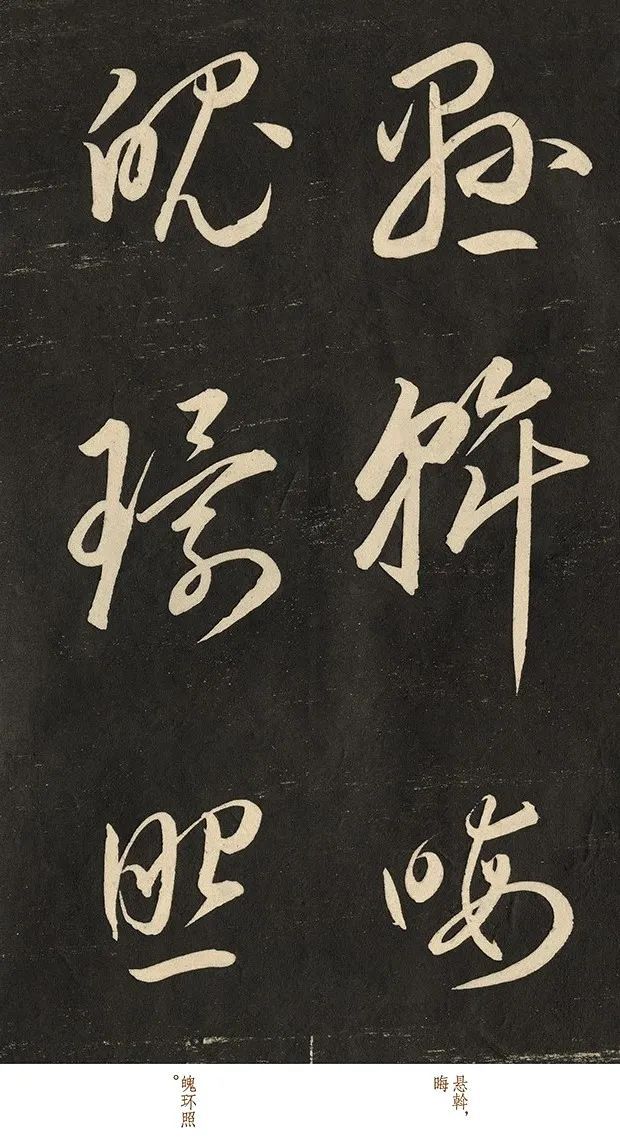 懸斡晦
魄環照
悬斡，
晦
魄环照
。